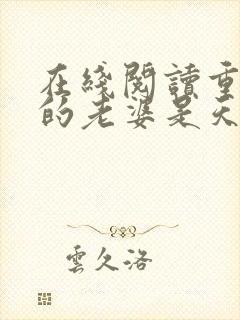 在綫閱讀重
的老婆是天
雲久洛